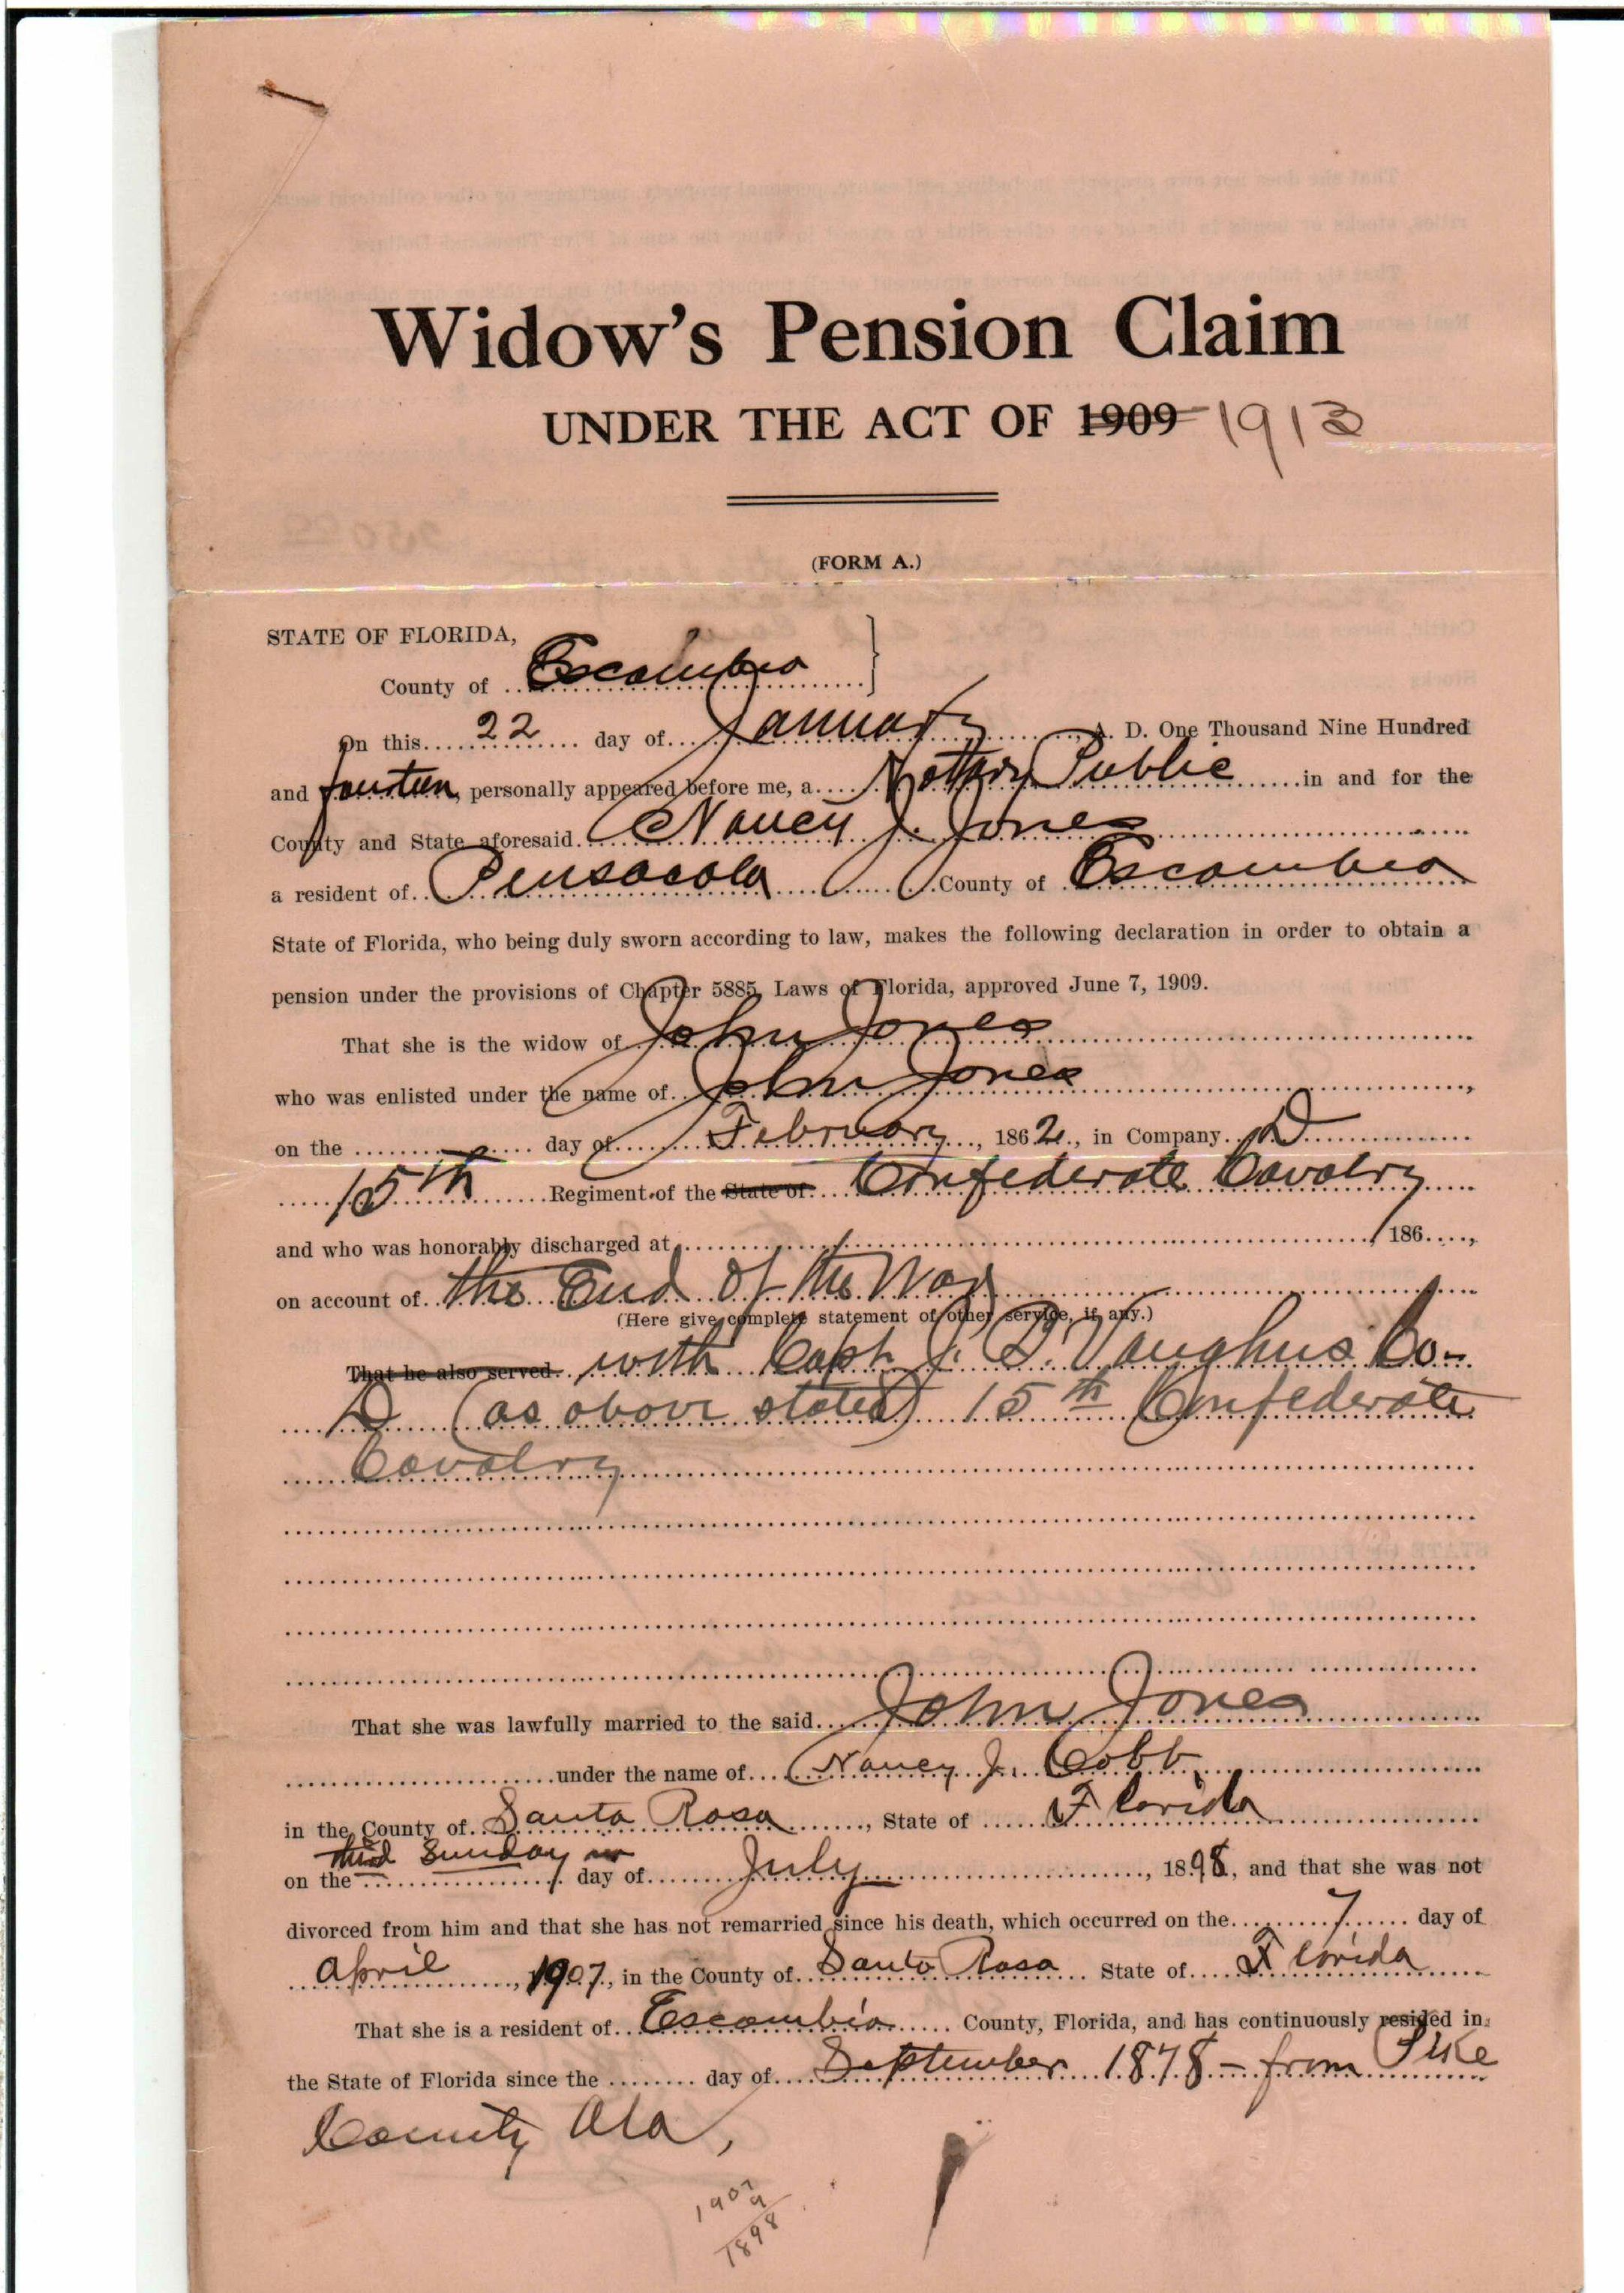 Widow's Pension Claim
UNDER THE ACT OF 1909 1913
(FORM A.)
STATE OF FLORIDA,
County of Escambia
On this 22 day of January, A. D. One Thousand Nine Hundred
and fourteen, personally appeared before me, a Notary Public in and for the
County and State aforesaid Nancy J. Jones
a resident of Pensacola County of Escambia
State of Florida, who being duly sworn according to law, makes the following declaration in order to obtain a
pension under the provisions of Chapter 5885, Laws of Florida, approved June 7, 1909.
That she is the widow of John Jones
who was enlisted under the name of John Jones,
on the day of February, 1862, in Company D
15th Regiment of the State of Confederate Cavalry
and who was honorably discharged at, 186,
on account of the End of the War
(Here give complete statement of other service, if any.)
That he also served with Capt J. D. Vaughns Co-
D (as above stated) 15th Confederate
Cavalry
That she was lawfully married to the said John Jones
under the name of Nancy J. Cobb
in the County of Santa Rosa, State of Florida
on the third Sunday in day of July, 1898, and that she was not
divorced from him and that she has not remarried since his death, which occurred on the 7 day of
April, 1907, in the County of Santa Rosa State of Florida
That she is a resident of Escambia County, Florida, and has continuously resided in
the State of Florida since the day of September 1878 - from Pike
County Ala,
1907
9
1898